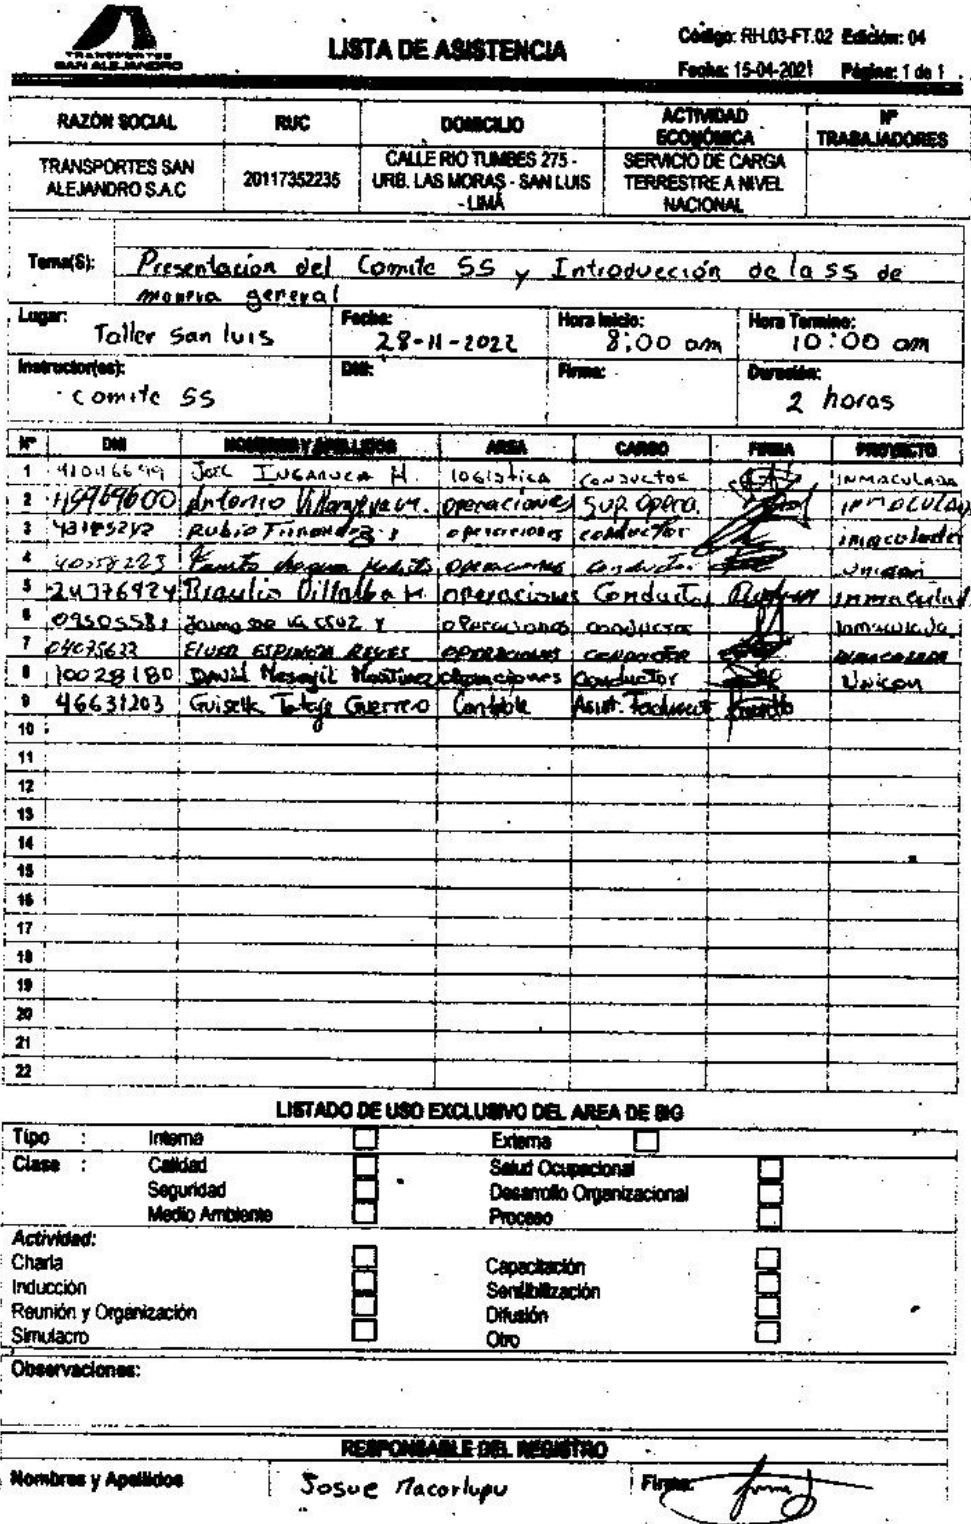 TRANSPORTES
SAN ALEJANDRO
LISTA DE ASISTENCIA
Código: RH.03-FT.02 Edición: 04
Fecha: 15-04-2021 Página: 1 de 1
RAZÓN SOCIAL RUC DOMICILIO ACTIVIDAD ECONÓMICA Nº TRABAJADORES
TRANSPORTES SAN ALEJANDRO S.A.C 20117352235 CALLE RIO TUMBES 275 - URB. LAS MORAS - SAN LUIS - LIMA SERVICIO DE CARGA TERRESTRE A NIVEL NACIONAL
Tema(S): Presentación del Comite SS y Introducción de la SS de
manera general
Lugar: Taller San luis Fecha: 28-11-2022 Hora Inicio: 8:00 am Hora Termino: 10:00 am
Instructor(es): comite SS DNI: Firma: Duración: 2 horas
Nº DNI NOMBRES Y APELLIDOS AREA CARGO FIRMA PROYECTO
1 logistica conductor INMACULADA
2 Antonio operaciones Sup. Opera. INMACULADA
3 Rubio operaciones conductor inmaculada
4 operaciones conductor Unicon
5 24776924 Braulio Villalba M. operaciones Conductor inmaculada
6 Jaime de la cruz Y operaciones conductor inmaculada
7 04075622 ELVER ESPINOZA REYES OPERACIONES CONDUCTOR INMACULADA
8 10028180 David Martinez operaciones Conductor Unicon
9 46631203 Guerrero Contable Asist.
10
11
12
13
14
15
16
17
18
19
20
21
22
LISTADO DE USO EXCLUSIVO DEL AREA DE SIG
Tipo : Interna Externa
Clase : Calidad Salud Ocupacional
Seguridad Desarrollo Organizacional
Medio Ambiente Proceso
Actividad:
Charla Capacitación
Inducción Sensibilización
Reunión y Organización Difusión
Simulacro Otro
Observaciones:
RESPONSABLE DEL REGISTRO
Nombres y Apellidos Josue Macarlupu Firma: